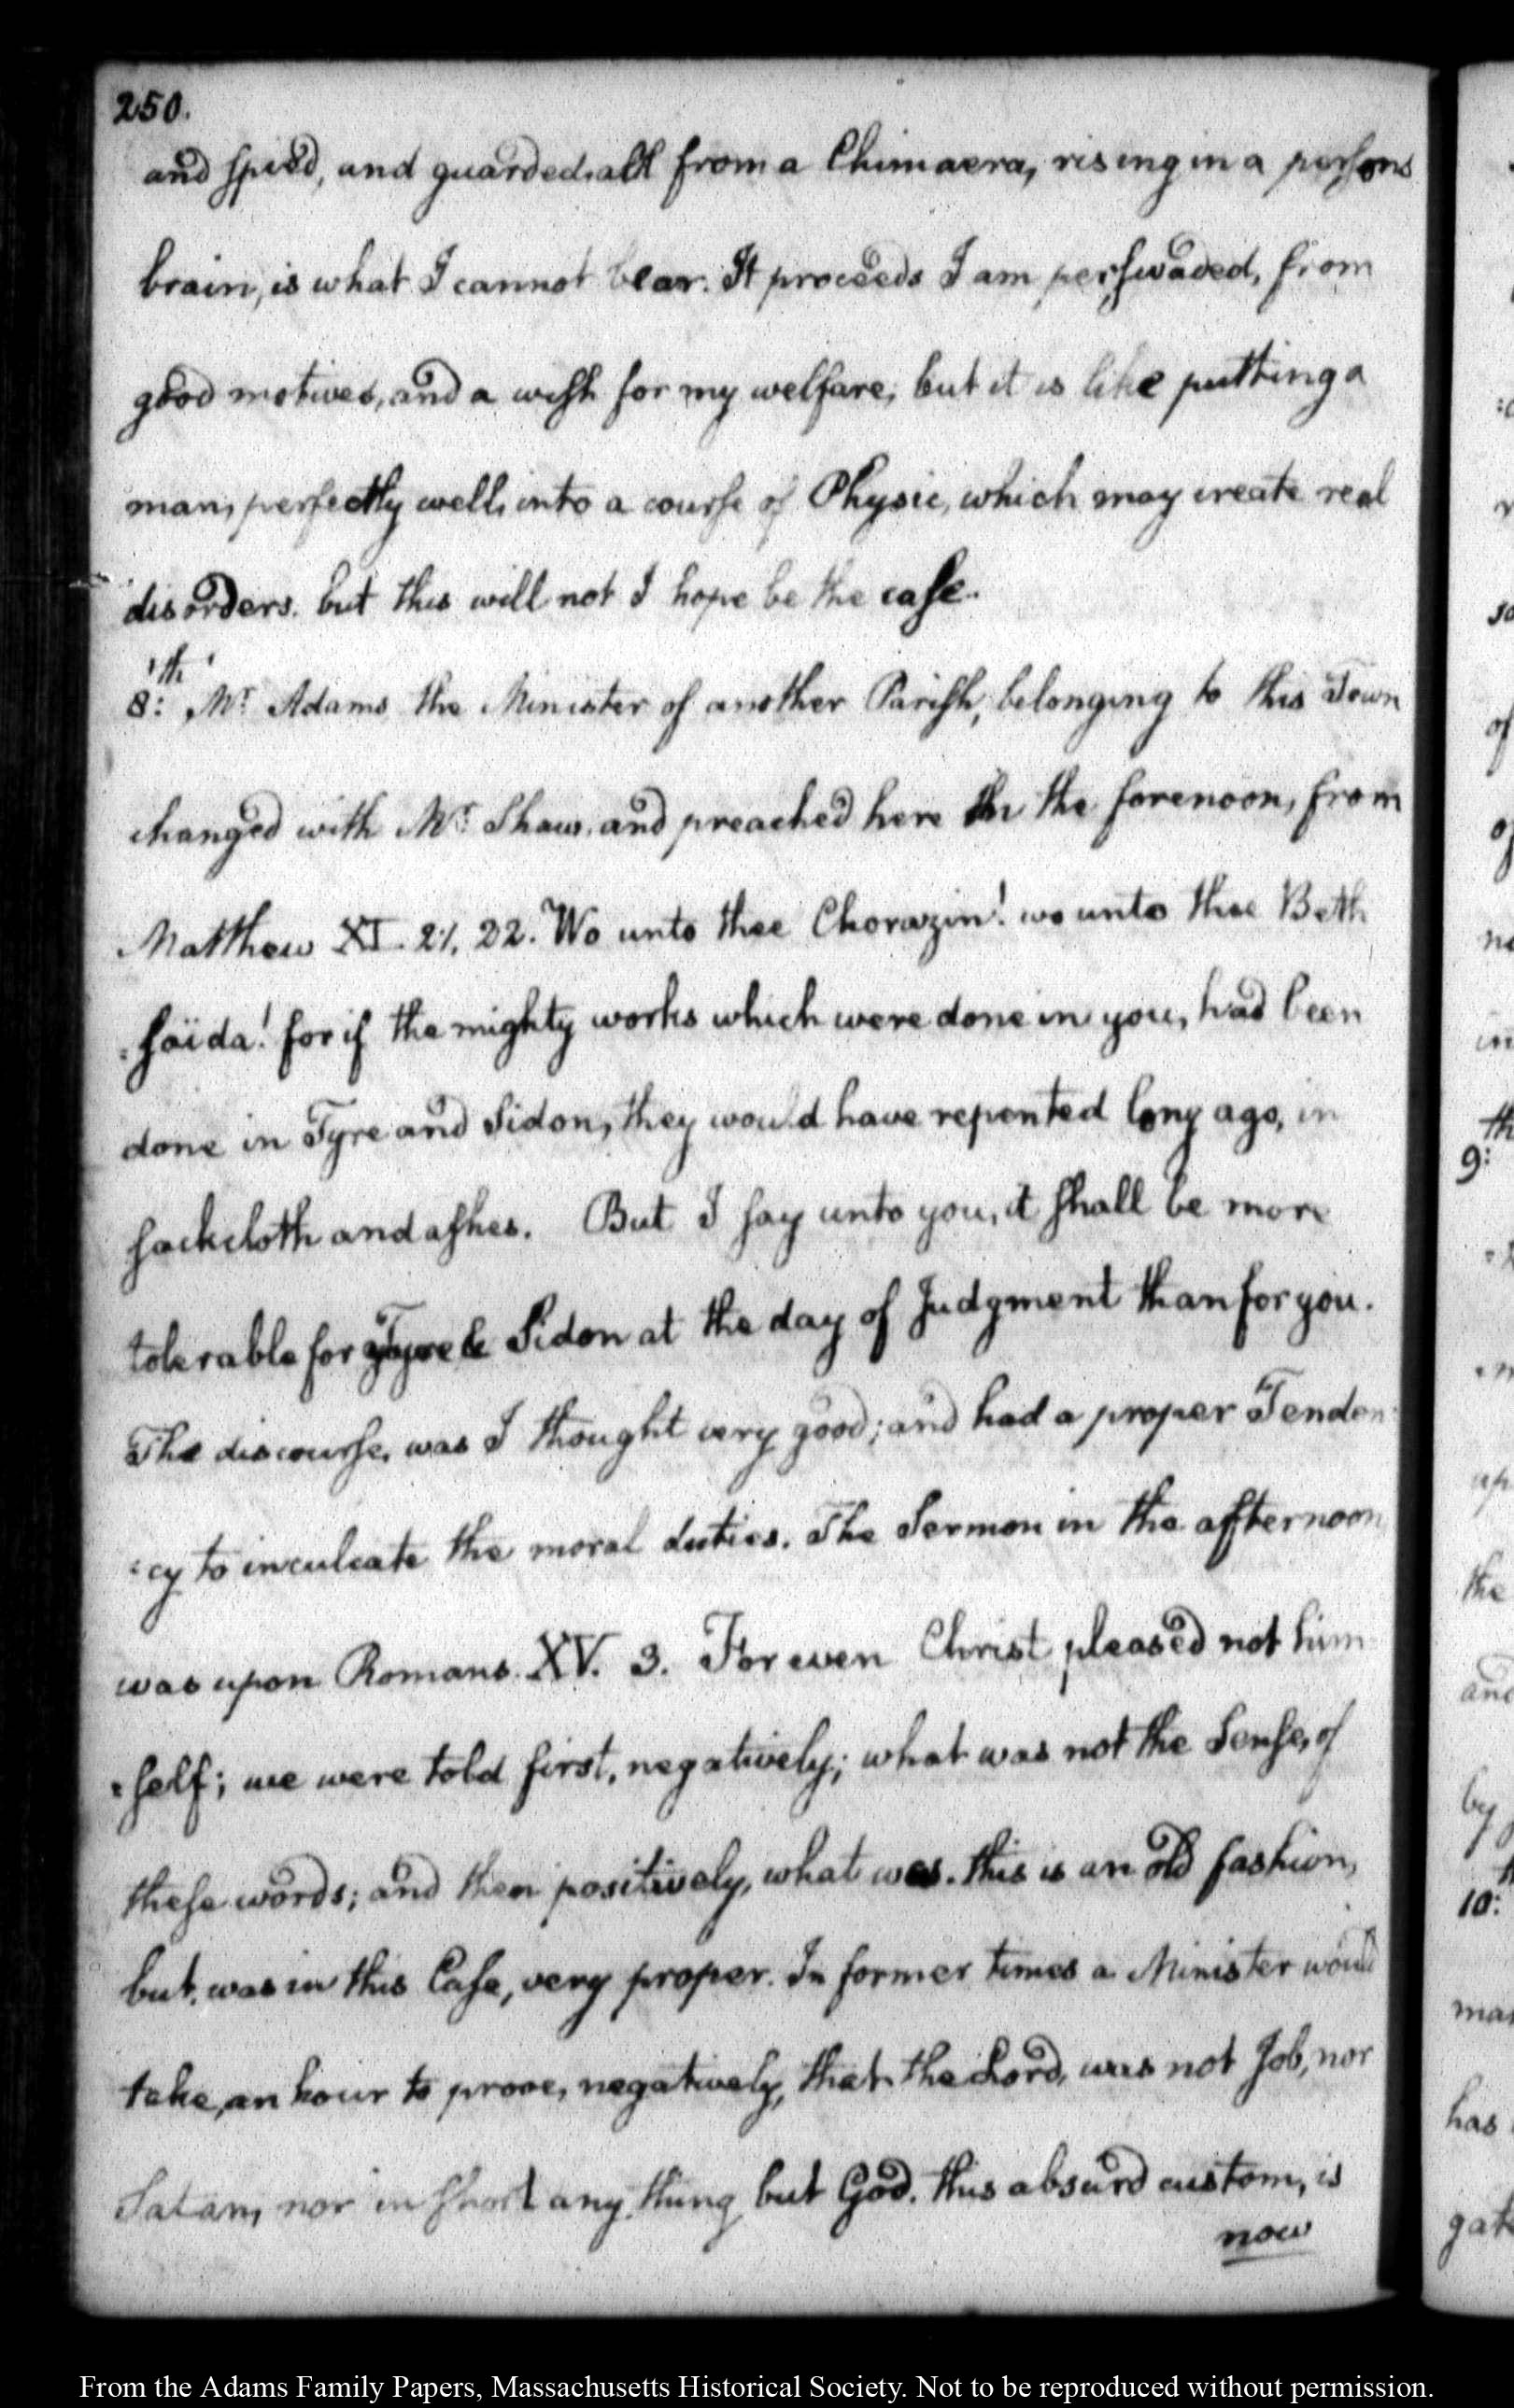 250.
and spied, and guarded, all from a Chimaera, rising in a persons
brain, is what I cannot bear. It proceeds I am perswaded, from
good motives, and a wish for my welfare; but it is like putting a
man, perfectly well, into a course of Physic, which may create real
disorders. but this will not I hope be the case.
th
8: Mr. Adams the Minister of another Parish, belonging to this Town
changed with Mr. Shaw, and preached here in the forenoon, from
Matthew XI. 21, 22. Wo unto thee Chorazin! wo unto thee Beth
=saïda! for if the mighty works which were done in you, had been
done in Tyre and Sidon, they would have repented long ago, in
sackcloth and ashes. But I say unto you, it shall be more
tolerable for Tyre & Sidon at the day of Judgment than for you.
The discourse, was I thought very good; and had a proper Tenden
=cy to inculcate the moral duties. The Sermon in the afternoon
was upon Romans. XV. 3. For even Christ pleased not him
=self; we were told first, negatively; what was not the Sense, of
these words; and then positively, what was. this is an old fashion,
but, was in this Case, very proper. In former times a Minister would
take, an hour to prove, negatively, that the Lord, was not Job, nor
Satan, nor in short any thing but God. this absurd custom, is
now
From the Adams Family Papers, Massachusetts Historical Society. Not to be reproduced without permission.